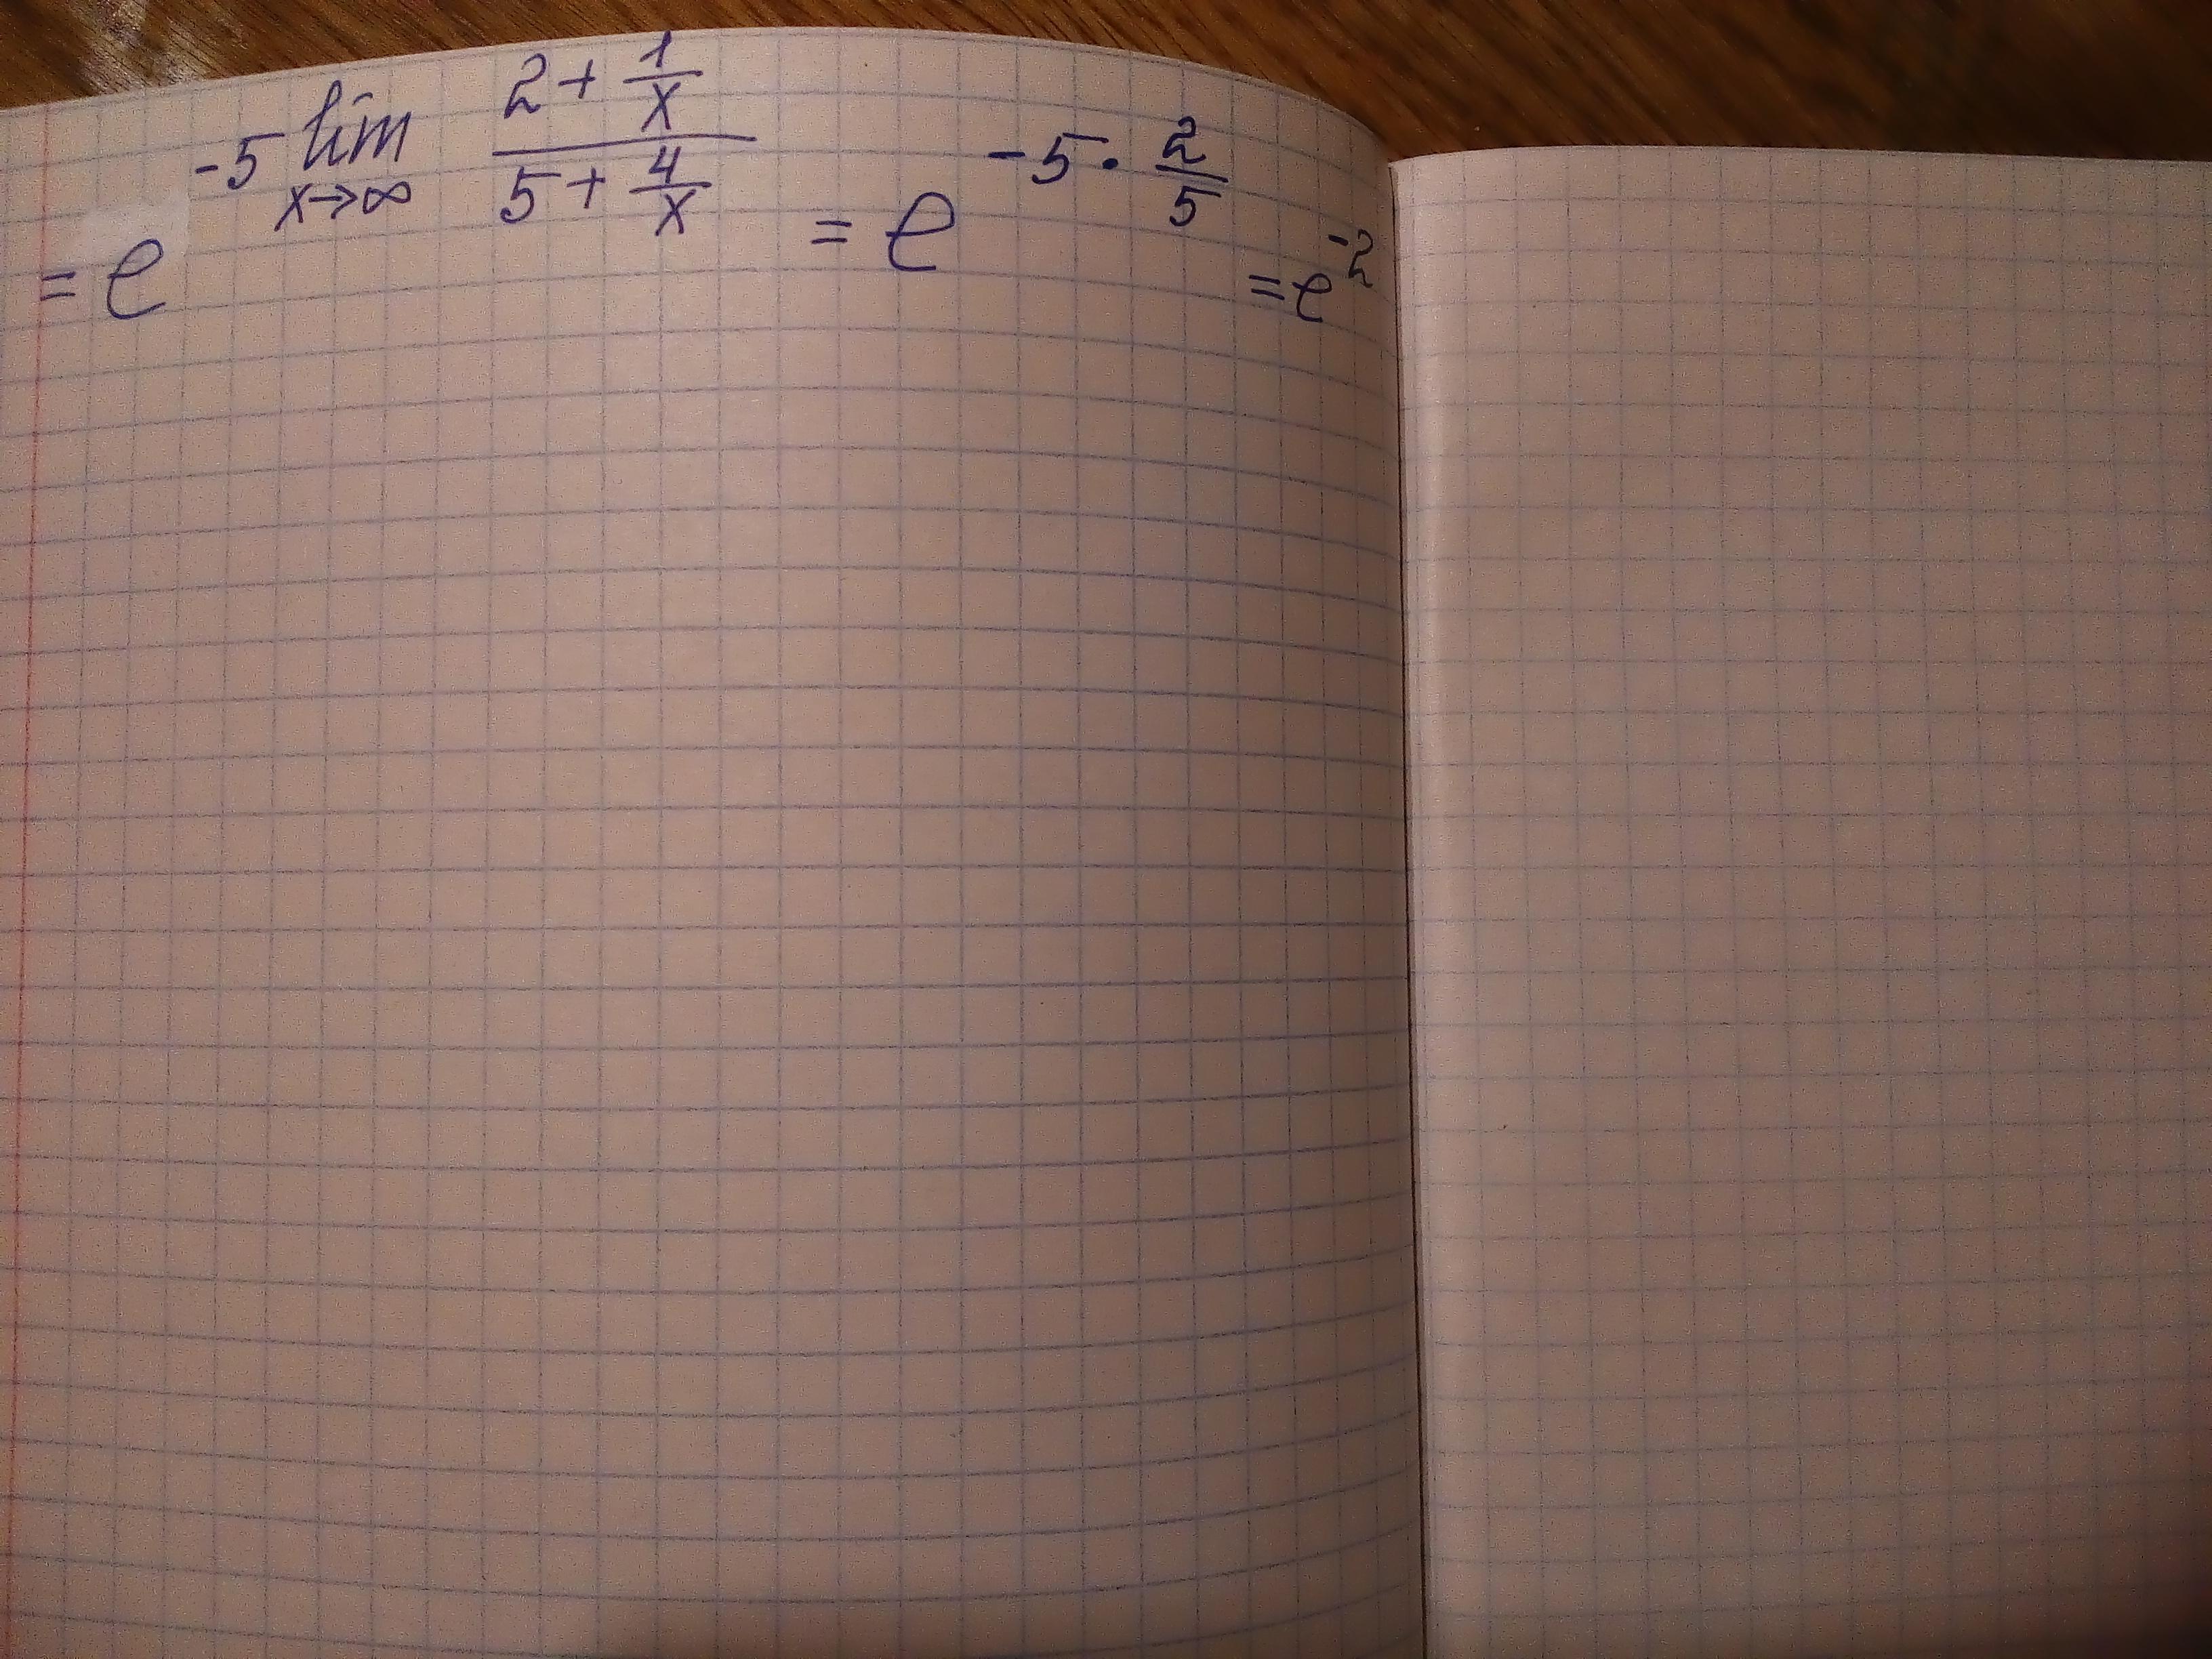 = e^{-5 \lim_{x→∞} \frac{2 + \frac{1}{x}}{5 + \frac{4}{x}}} = e^{-5 · \frac{2}{5}} = e^{-2}